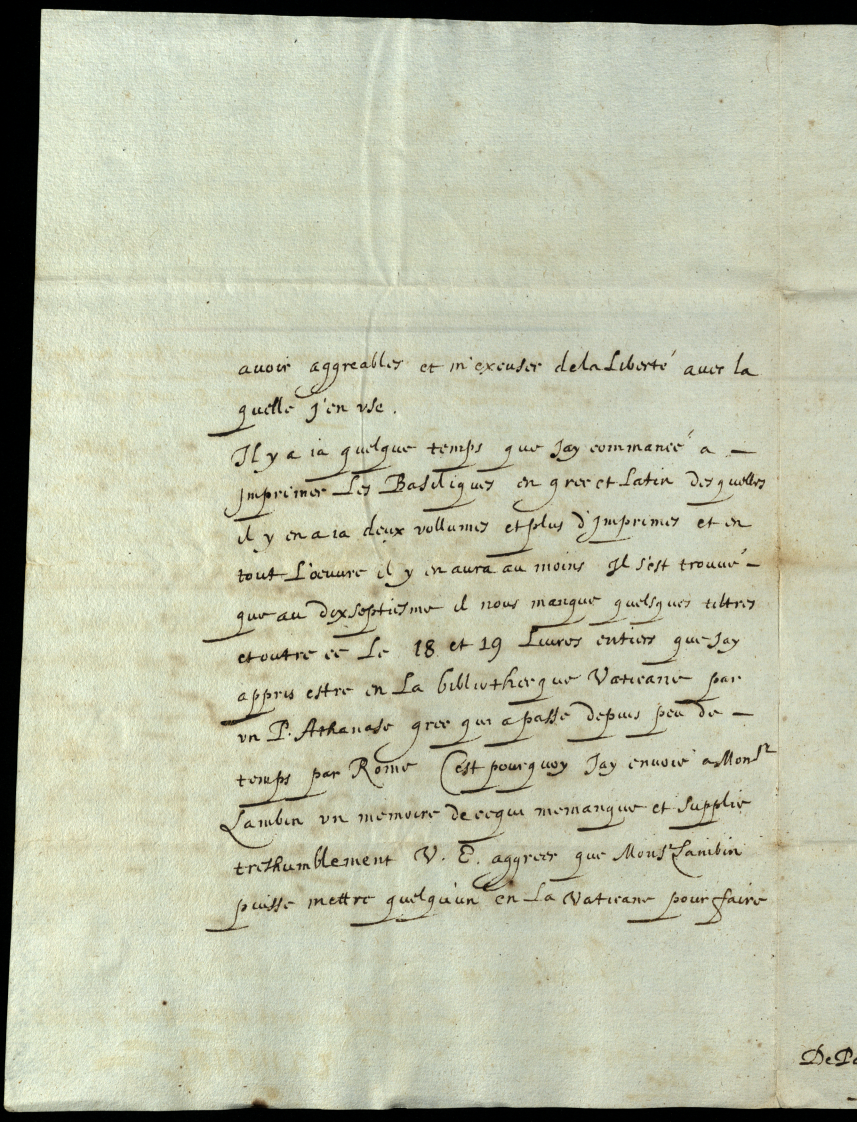 avoir aggreables et m'excuser de la Liberté avec la
quelle j'en use.
Il y a ia quelque temps que Jay commancé a —
Jmprimer Les Basiliques en grec et Latin desquelles
il y en a ia deux vollumes et plus d'Jmprimes et en
tout L'oeuvre il y en aura au moins Il s'est trouué —
que au dixseptiesme il nous manque quelsques tiltres
et outre ce Le 18 et 19 Liures entiers que Jay
appris estre en La bibliothecque Vaticane par
un P. Athanase grec qui a passé depuis peu de —
temps par Rome C'est pourquoy Jay enuoié a Monsr
Lambin un memoire de ce qui me manque et supplie
treshumblement V. E. aggreer que Monsr Lambin
puisse mettre quelqu'un en La Vaticane pour faire
De Pa